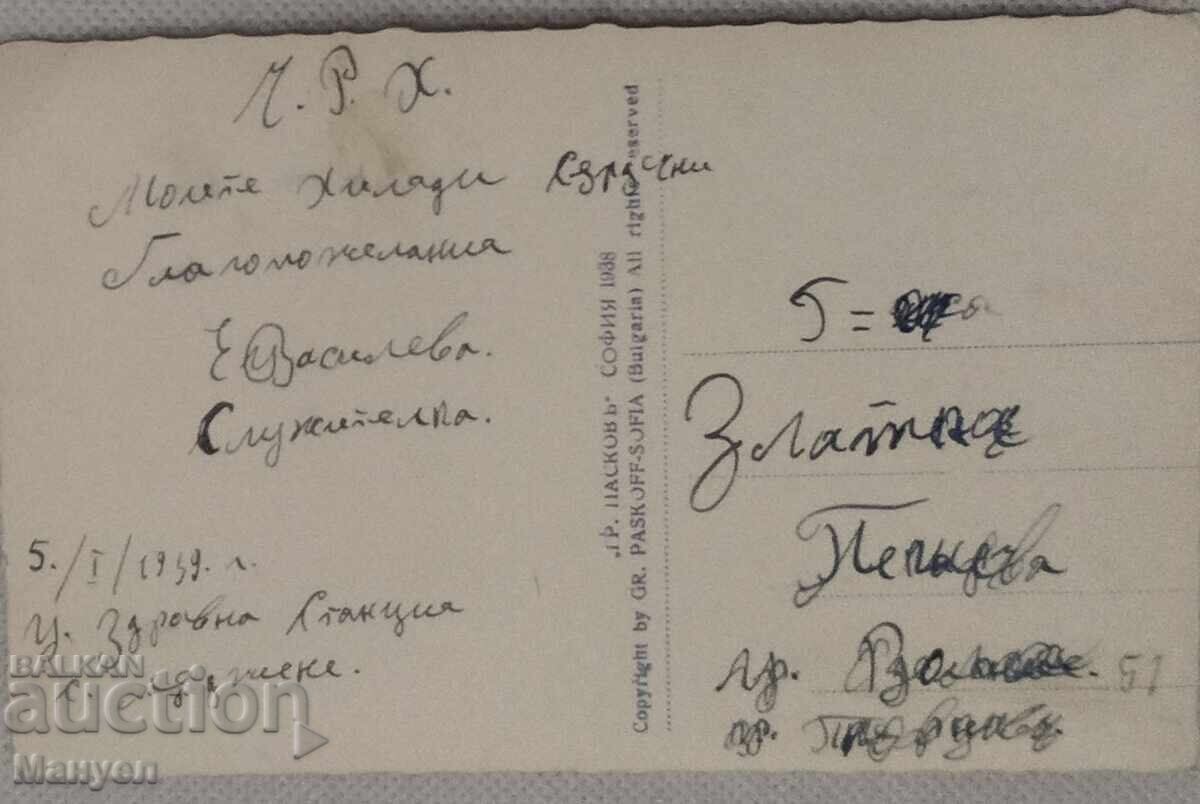 Ч. Р. Х.
Моите хиляди сърдечни
благопожелания
Е Василева.
Служителка.
5./I/1939. г.
Ц. Здравна Станция
с.
"ГР. ПАСКОВЪ" СОФИЯ 1938
Copyright by GR. PASKOFF-SOFIA (Bulgaria) All rights reserved
Г =
Златка
гр.
51
гр.
BALKAN
auction
Мануел